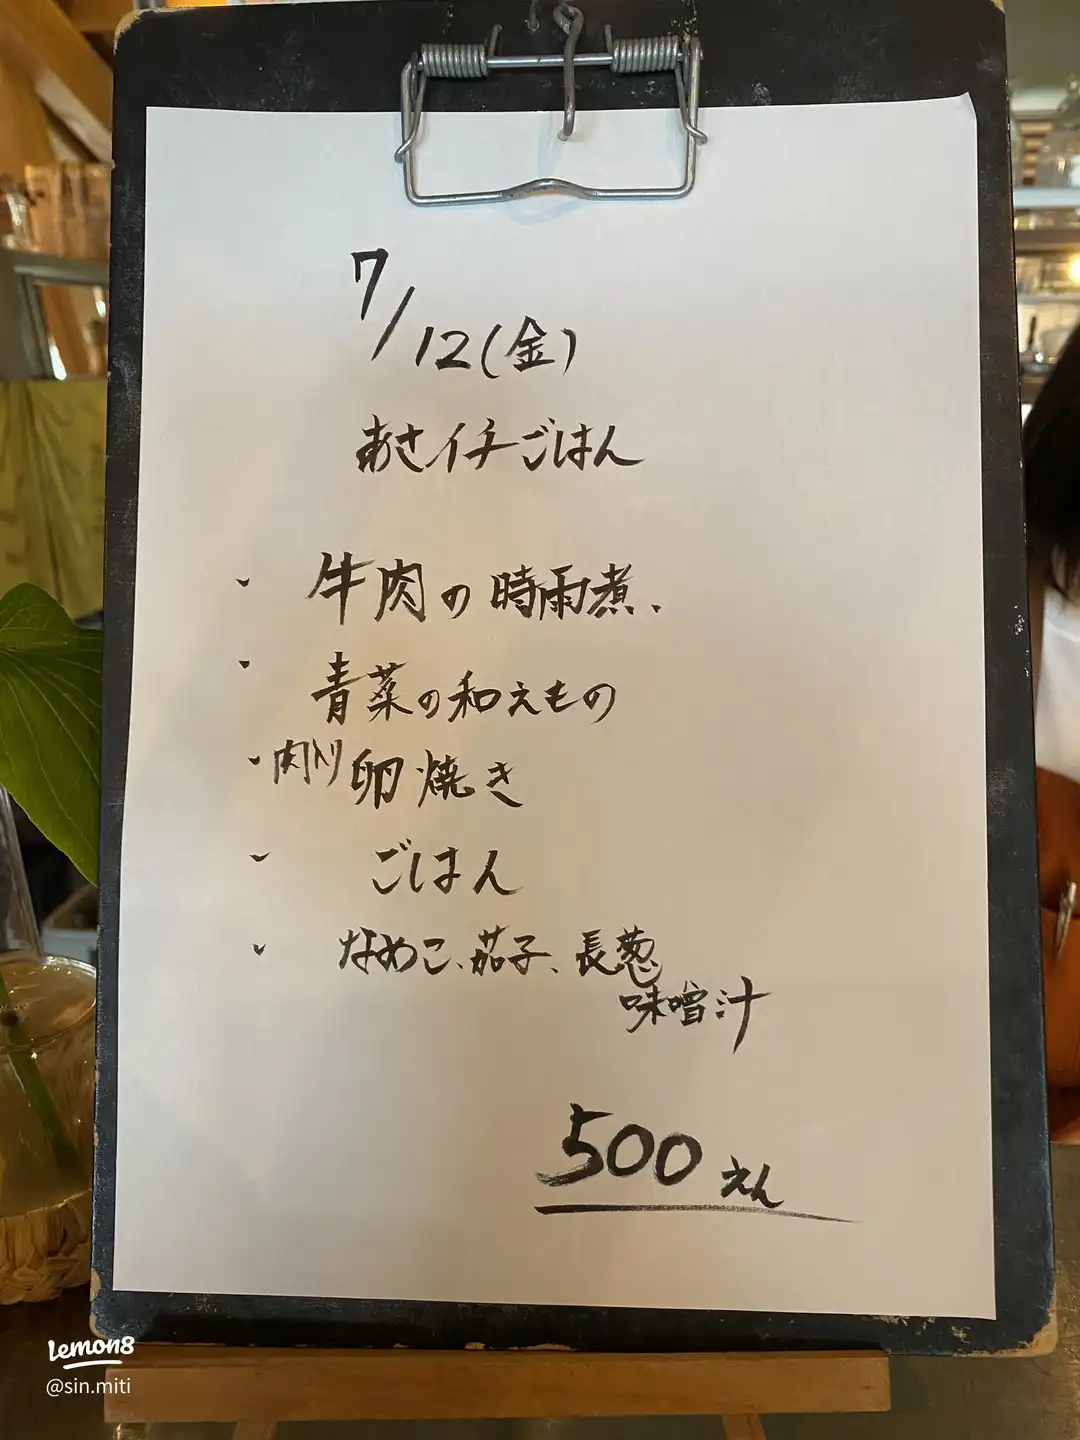 7/12(金)
あさイチごはん
・牛肉の時雨煮、
・青菜の和えもの
・肉入り卵焼き
・ごはん
・なめこ、茄子、長葱
味噌汁
500えん
lemon8
@sin.miti